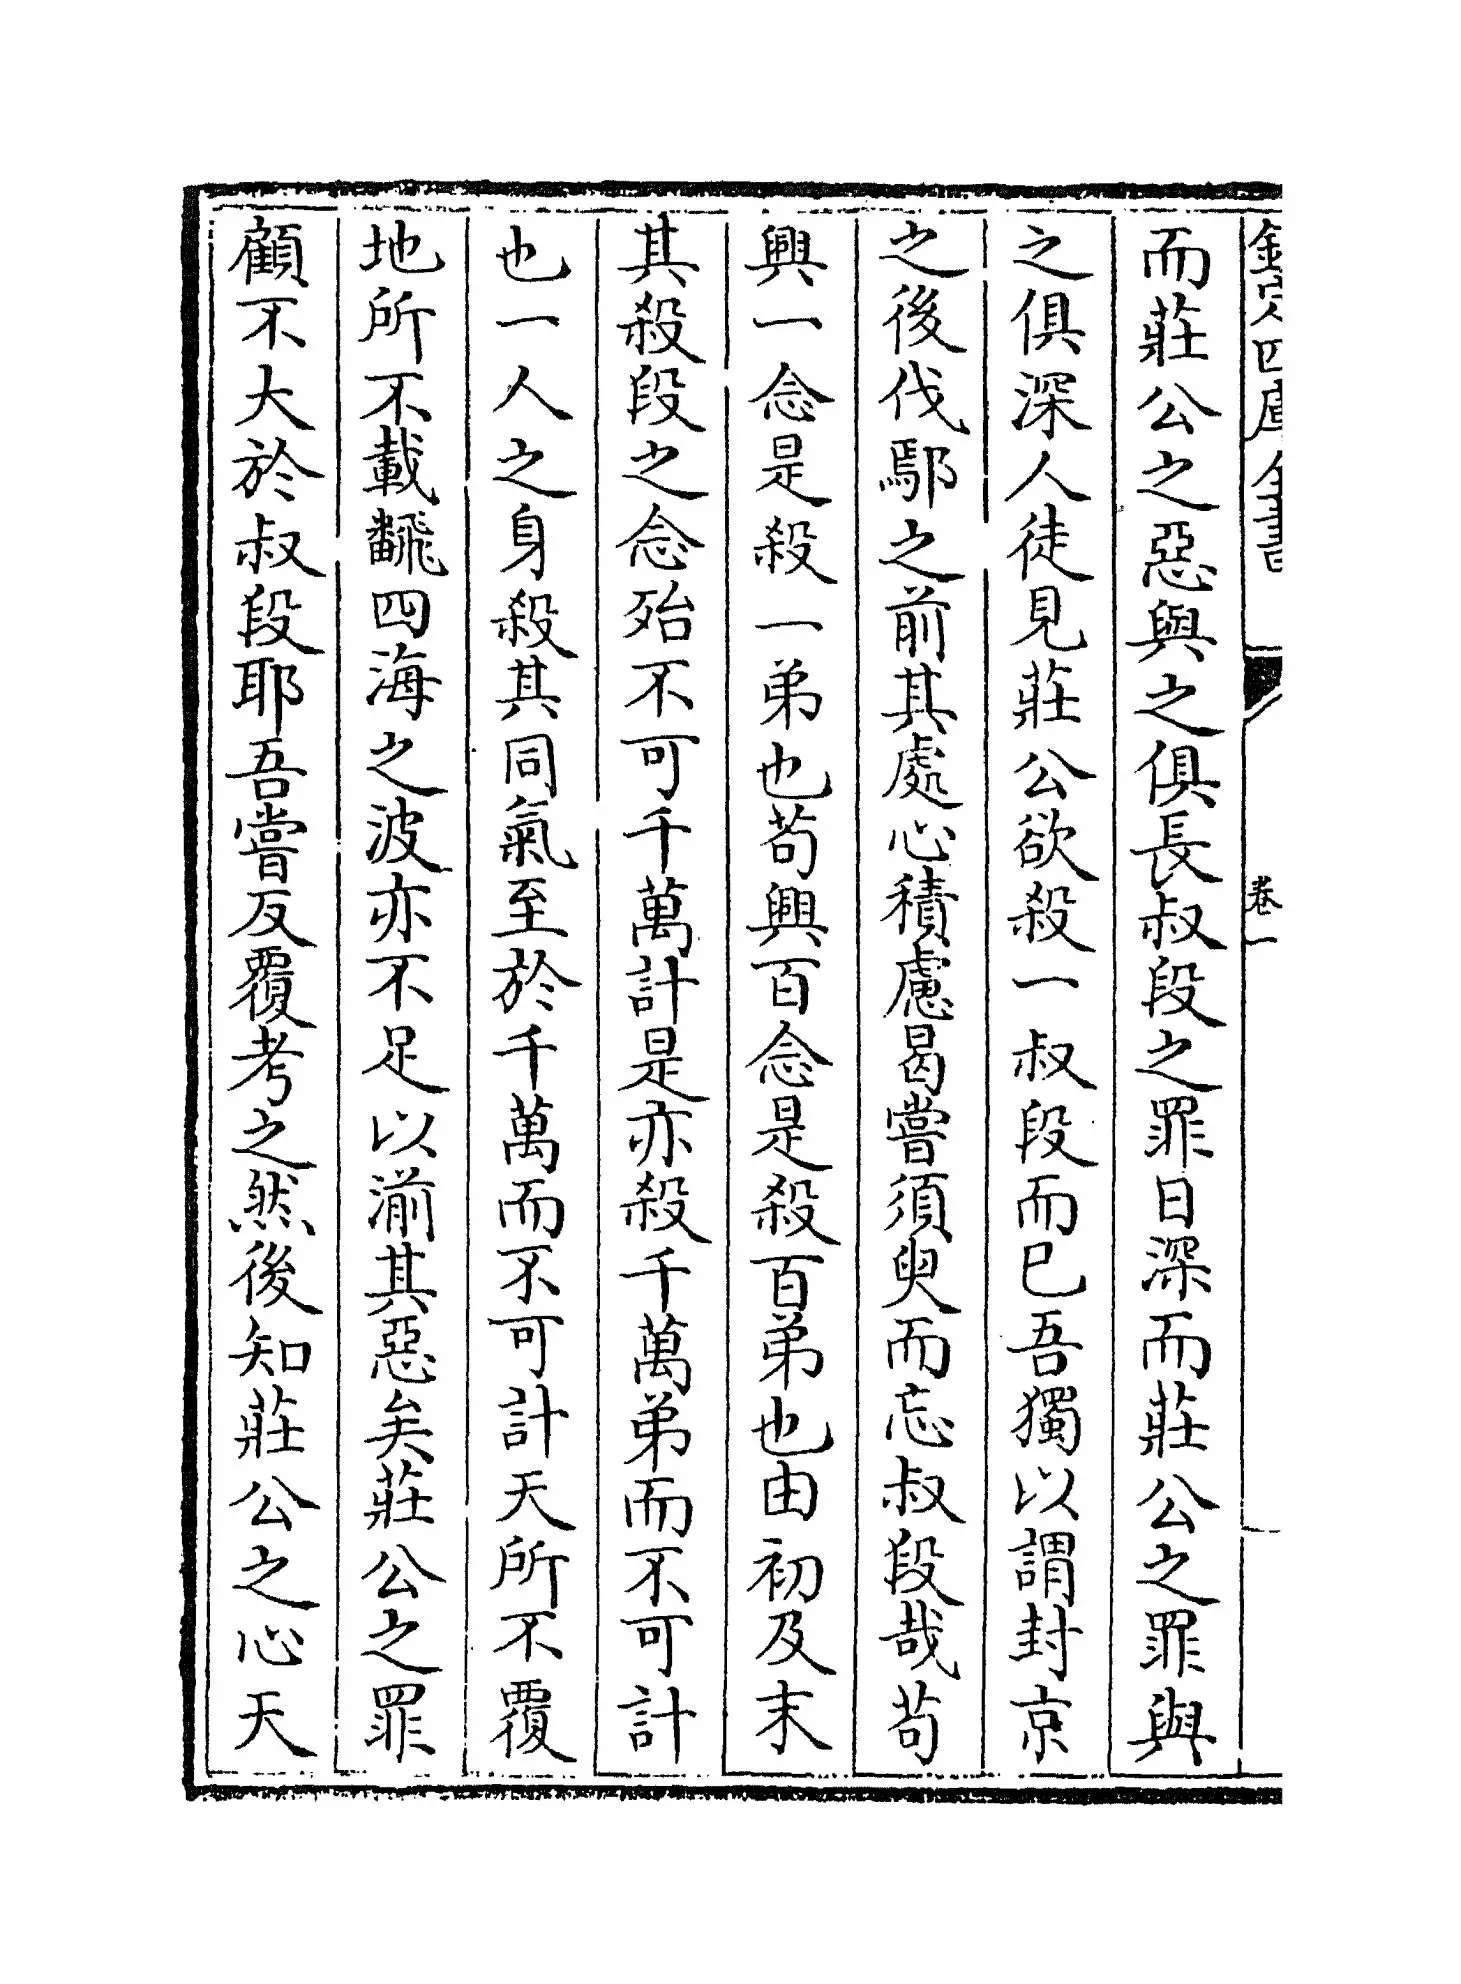 欽定四庫全書
卷一
而莊公之惡與之俱長叔段之罪日深而莊公之罪與
之俱深人徒見莊公欲殺一叔段而已吾獨以謂封京
之後伐鄢之前其處心積慮曷嘗須臾而忘叔段哉苟
興一念是殺一弟也苟興百念是殺百弟也由初及末
其殺段之念殆不可千萬計是亦殺千萬弟而不可計
也一人之身殺其同氣至於千萬而不可計天所不覆
地所不載飜四海之波亦不足以湔其惡矣莊公之罪
顧不大於叔段耶吾嘗反覆考之然後知莊公之心天